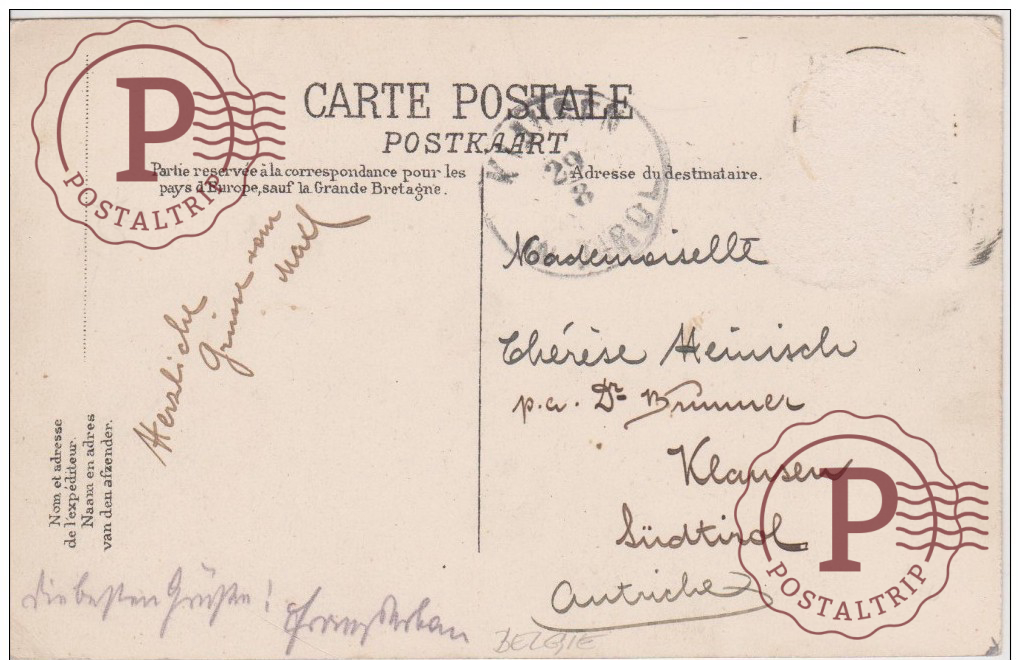 CARTE POSTALE
POSTKAART
Partie reservée à la correspondance pour les
pays d'Europe, sauf la Grande Bretagne.
Adresse du destinataire.
KLAUSEN
29
8
TIROL
Herzliche
Grüsse vom
Nom et adresse
de l'expéditeur.
Naam en adres
van den afzender.
Mademoiselle
Thérèse Heinisch
p.a. Dr Brunner
Klausen
Südtirol
Autriche
Die besten Grüße!
BELGIE
P
POSTALTRIP
P
POSTALTRIP